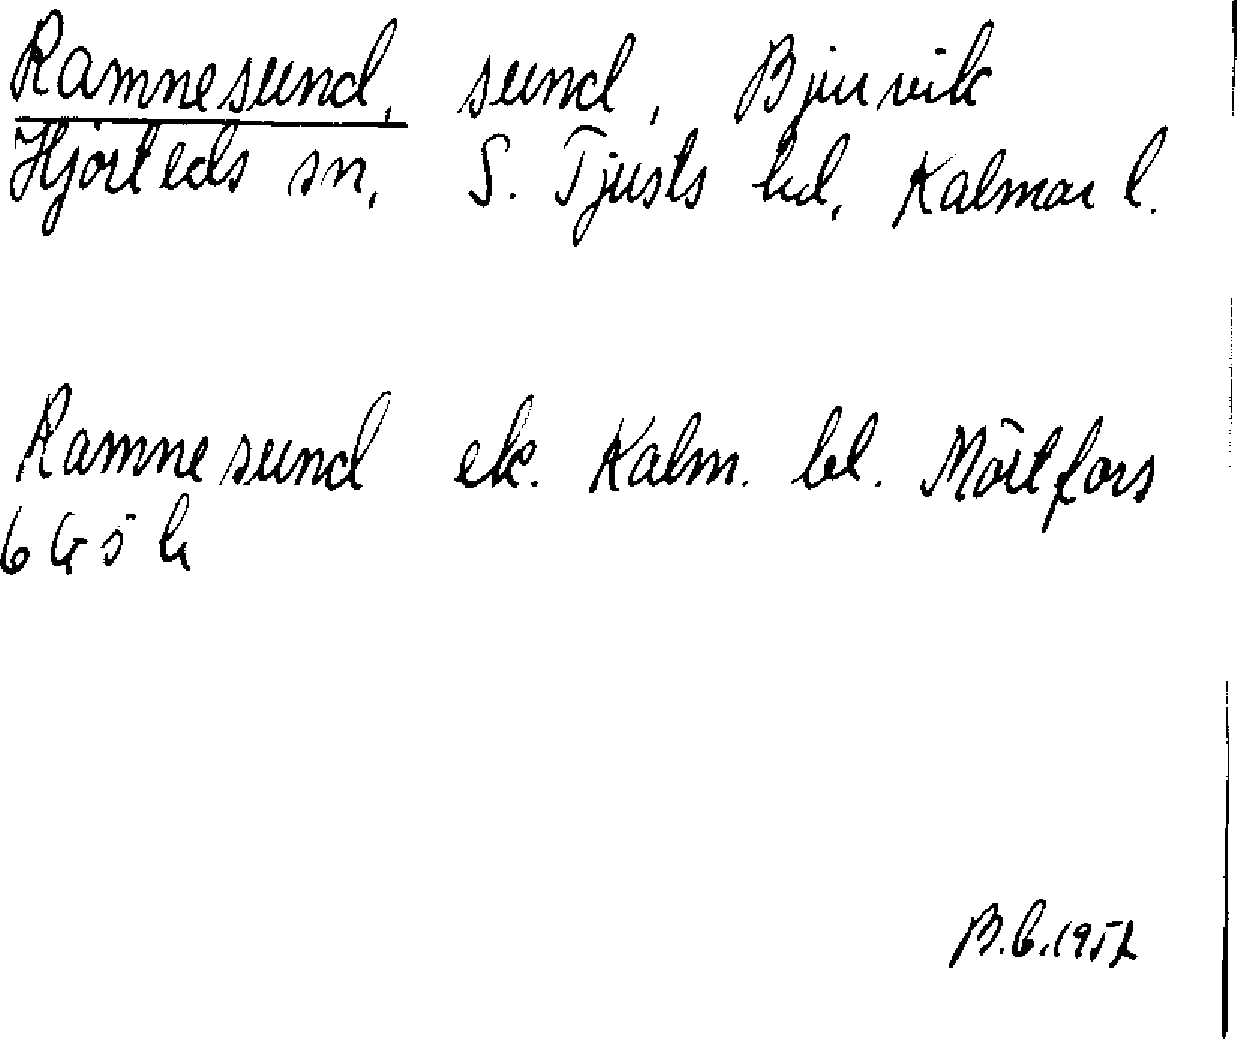 Ramnesund, sund, Bjurvik
Hjorteds sn, S. Tjusts hd, Kalmar l.
Ramnesund ek. Kalm. bl. Mörtfors
6 G 5 h
B.C. 1952